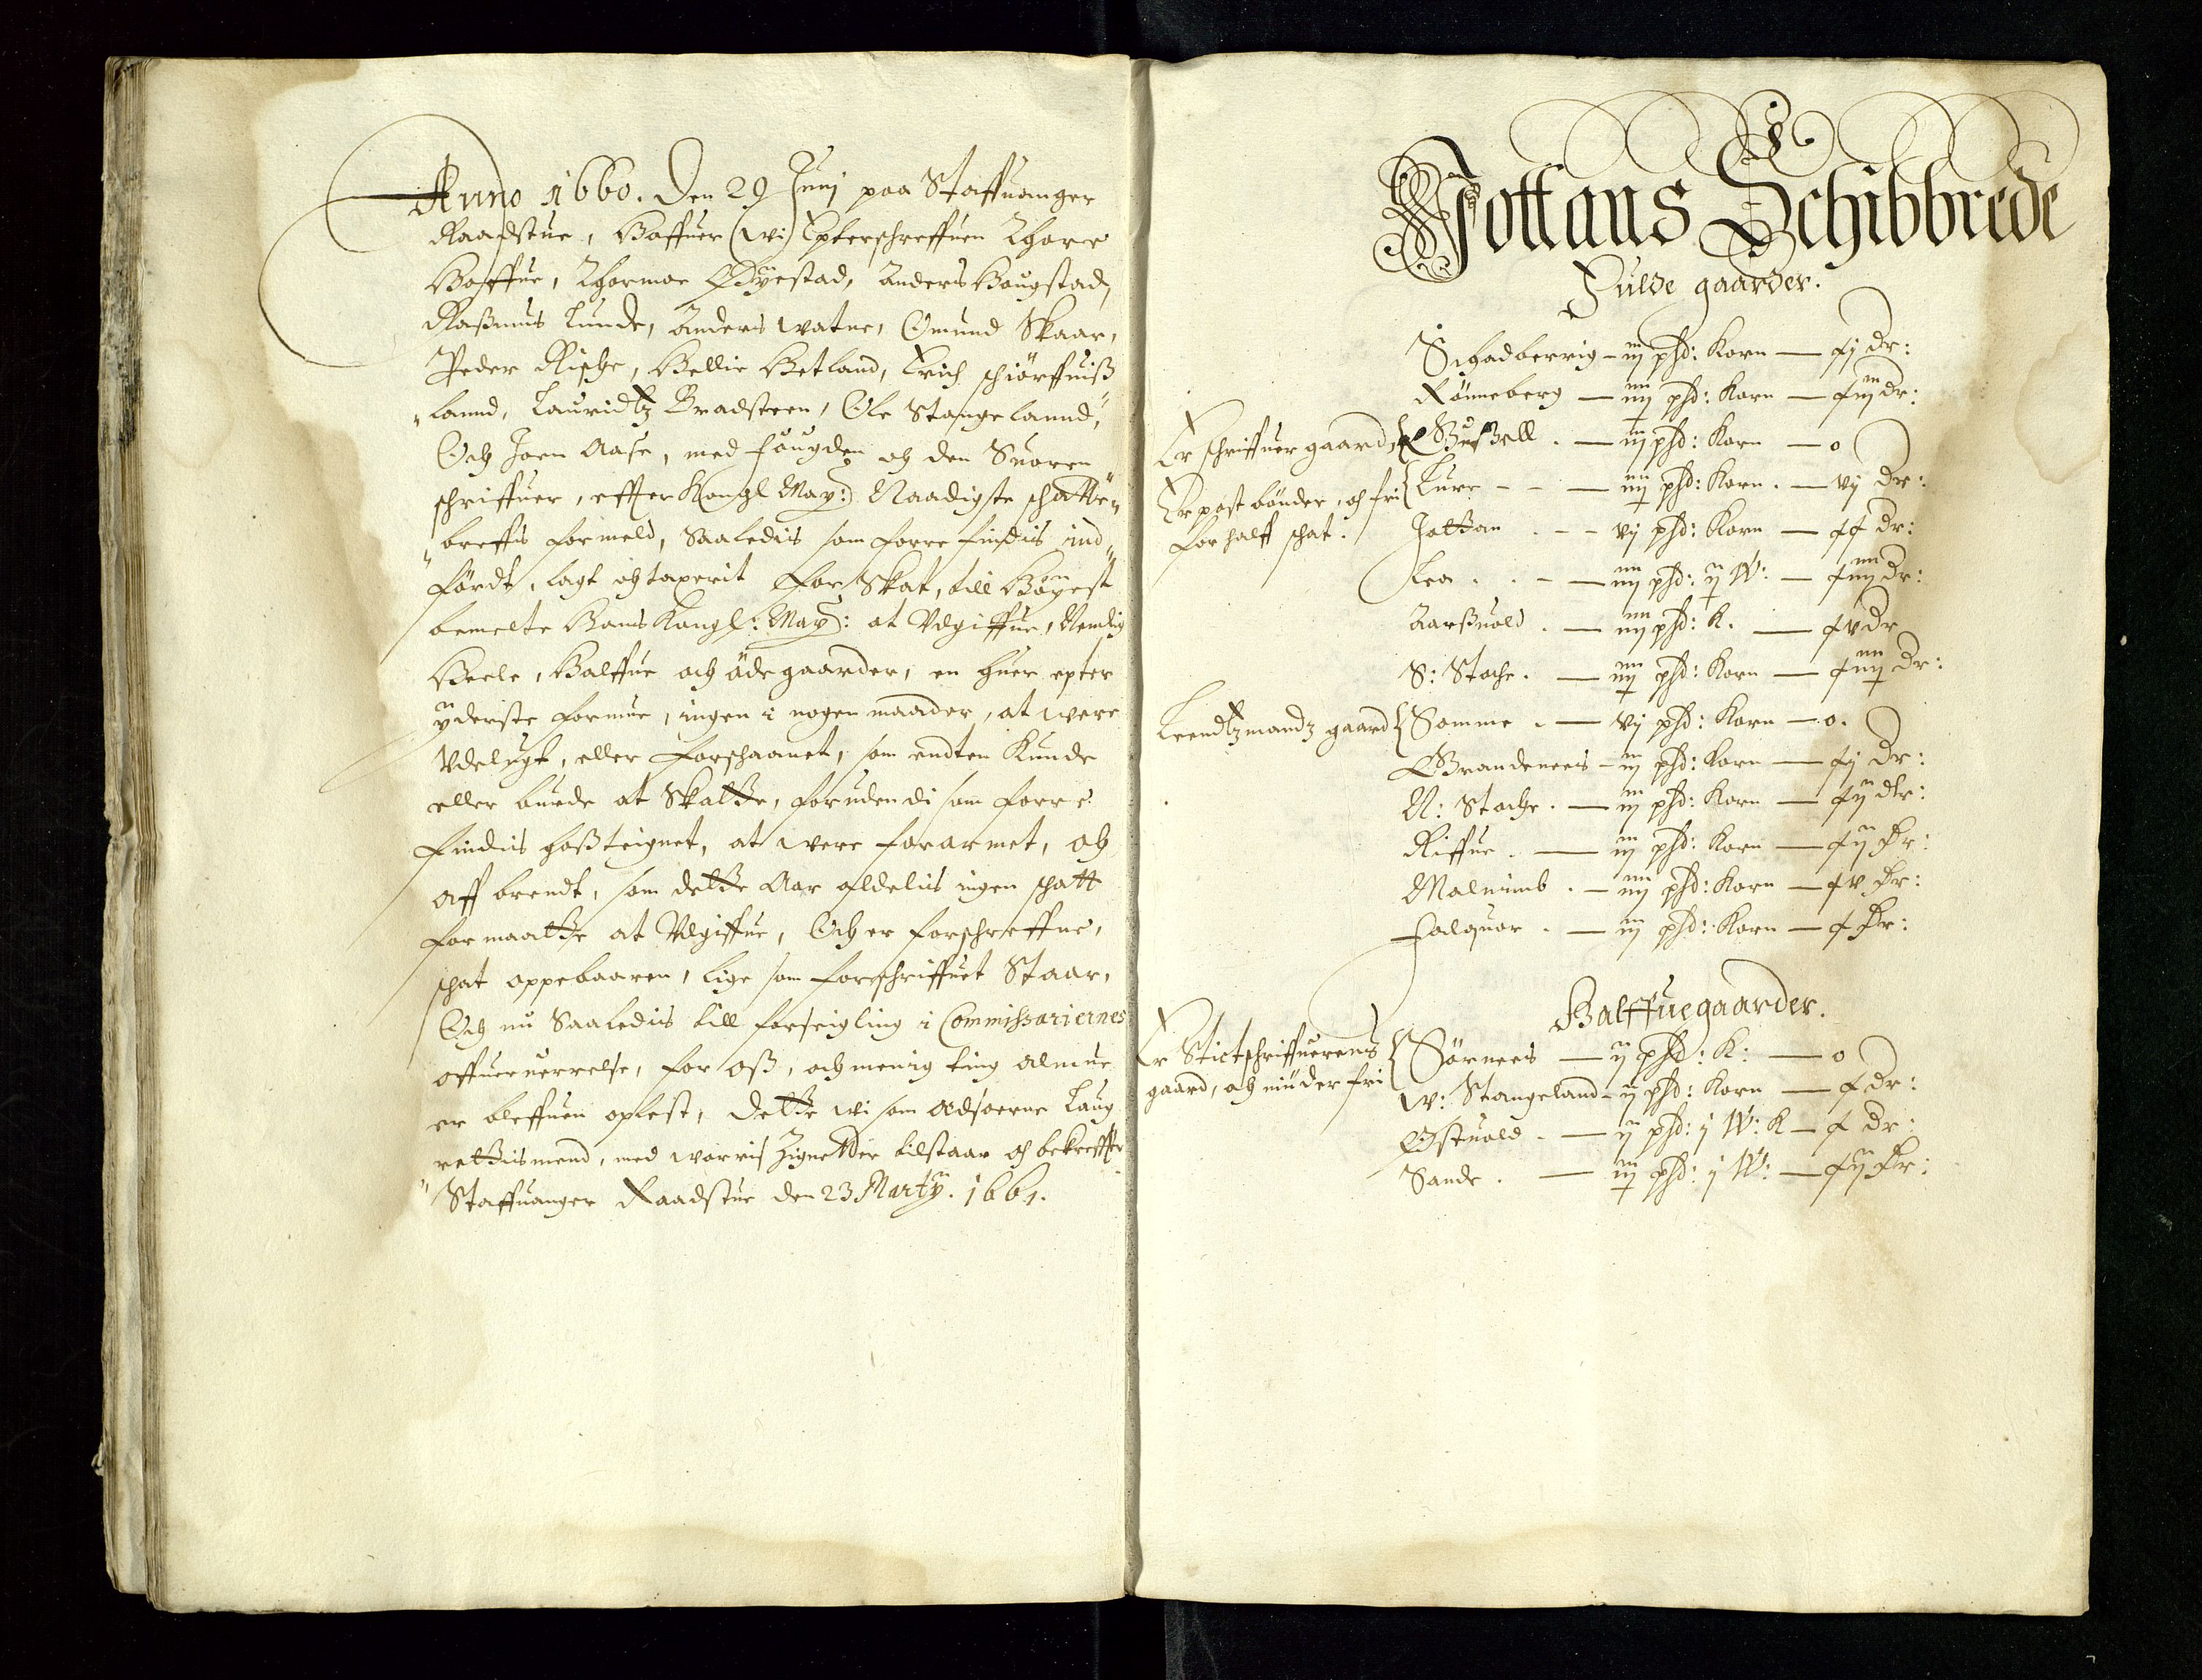 Anno 1660. Den 29 Junj paa Staffuanger
Raadstue, Haffuer (wi) Epterschreffuen Thore
Hoffue, Thormoe Ødyestad, Anders Haugstad,
Raßmus Lunde, Anders Watne, Omund Skaar,
Peder Rische, Hellie Hetland, Erich schiörffuiß
land, Lauridtz Bradsteen, Ole Stangeland,
Och Joen Aase, med fougden och den Suoren
schriffuer, effter Kongl May: Naadigste schatte
breffis formeld, Saaledis som forre findis ind
fördt, lagt och taxerit for Skat, till Höyest
bemelte Hans Kongl: May: at Udgiffue, Nemlig
Heele, Halffue och ödegaarder, en huer epter
yderste formue, ingen i nogen maader, at were
Udelugt, eller forschaanet, som endten Kunde
eller burde at Skatte, foruden di som forre
findis hoßteignet, at were forarmet, och
aff brendt, som dette Aar aldelis ingen schatt
formaatte at Udgiffue, Och er forschreffne,
schat oppebaaren, lige som forschriffuet Staar,
Och nu Saaledis till forseigling i Commissariernes
offueruerrelse, for oß, och menig ting almue
er bleffuen oplest, dette wi som Edsoerne Laug
rettismend, med worris Zignetter tilstaar och bekreffter
Staffuanger Raadstue den 23 Martij. 1661.
Jottans Schibbrede
Fulde gaarder.
Schadberrig - iij phd: Korn — xj dr:
Rönneberg — iiij phd: Korn — xiij dr:
Er schriffuer gaard, { Bußell . — iij phd: Korn — 0
Er post bönder, och fri { Lure - - — iiij phd: Korn . — vj dr:
for halff schat.
Jottan . - - vj phd: Korn — xx dr:
Lea . . - — iiij phd: ij W: — xiiij dr:
Aarßuold . — iiij phd: K. — xv dr
S: Stoche . — iiij phd: Korn — xiiij dr:
Leendtzmandz gaard { Somme . — vj phd: Korn — 0.
Brandenees - iij phd: Korn — xj dr:
N: Stoche . — iij phd: Korn — xij dr:
Riffue . — iij phd: Korn — xij dr:
Malmimb . — iiij phd: Korn — xv dr:
Folquor . — iij phd: Korn — x dr:
Halffue gaarder.
Er Stictschriffuerens { Sörnees — ij phd: K: — 0
gaard, och niuder fri
W: Stangeland - ij phd: Korn — x dr:
Østuold . — ij phd: j W: K — x dr:
Sande . — iij phd: j W: — xij dr: